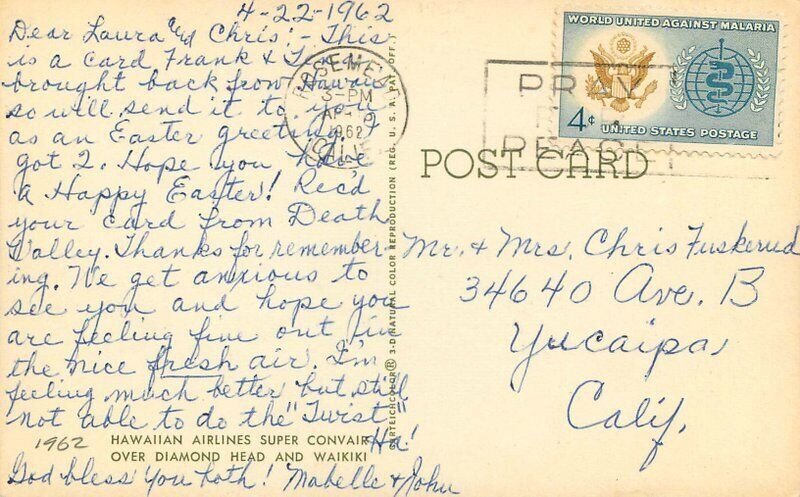 4-22-1962
Dear Laura and Chris:- This
is a card Frank &
brought back from Hawaii
so will send it to you
as an Easter greeting. I
got 2. Hope you have
a Happy Easter! Rec'd
your card from Death
Valley. Thanks for remember-
ing. We get anxious to
see you and hope you
are feeling fine out in
the nice fresh air. I'm
feeling much better but still
not able to do the "Twist"
Ha!
1962
HAWAIIAN AIRLINES SUPER CONVAIR
OVER DIAMOND HEAD AND WAIKIKI
God bless you both! Mabelle & John
CURTEICHCOLOR® 3-D NATURAL COLOR REPRODUCTION (REG. U.S.A. PAT. OFF.)
ROSEMEAD
3-PM
1962
CALIF.
PRAY
FOR
PEACE
WORLD UNITED AGAINST MALARIA
4¢
UNITED STATES POSTAGE
POST CARD
Mr. & Mrs. Chris Fuskerud
34640 Ave. B
Yucaipa,
Calif.